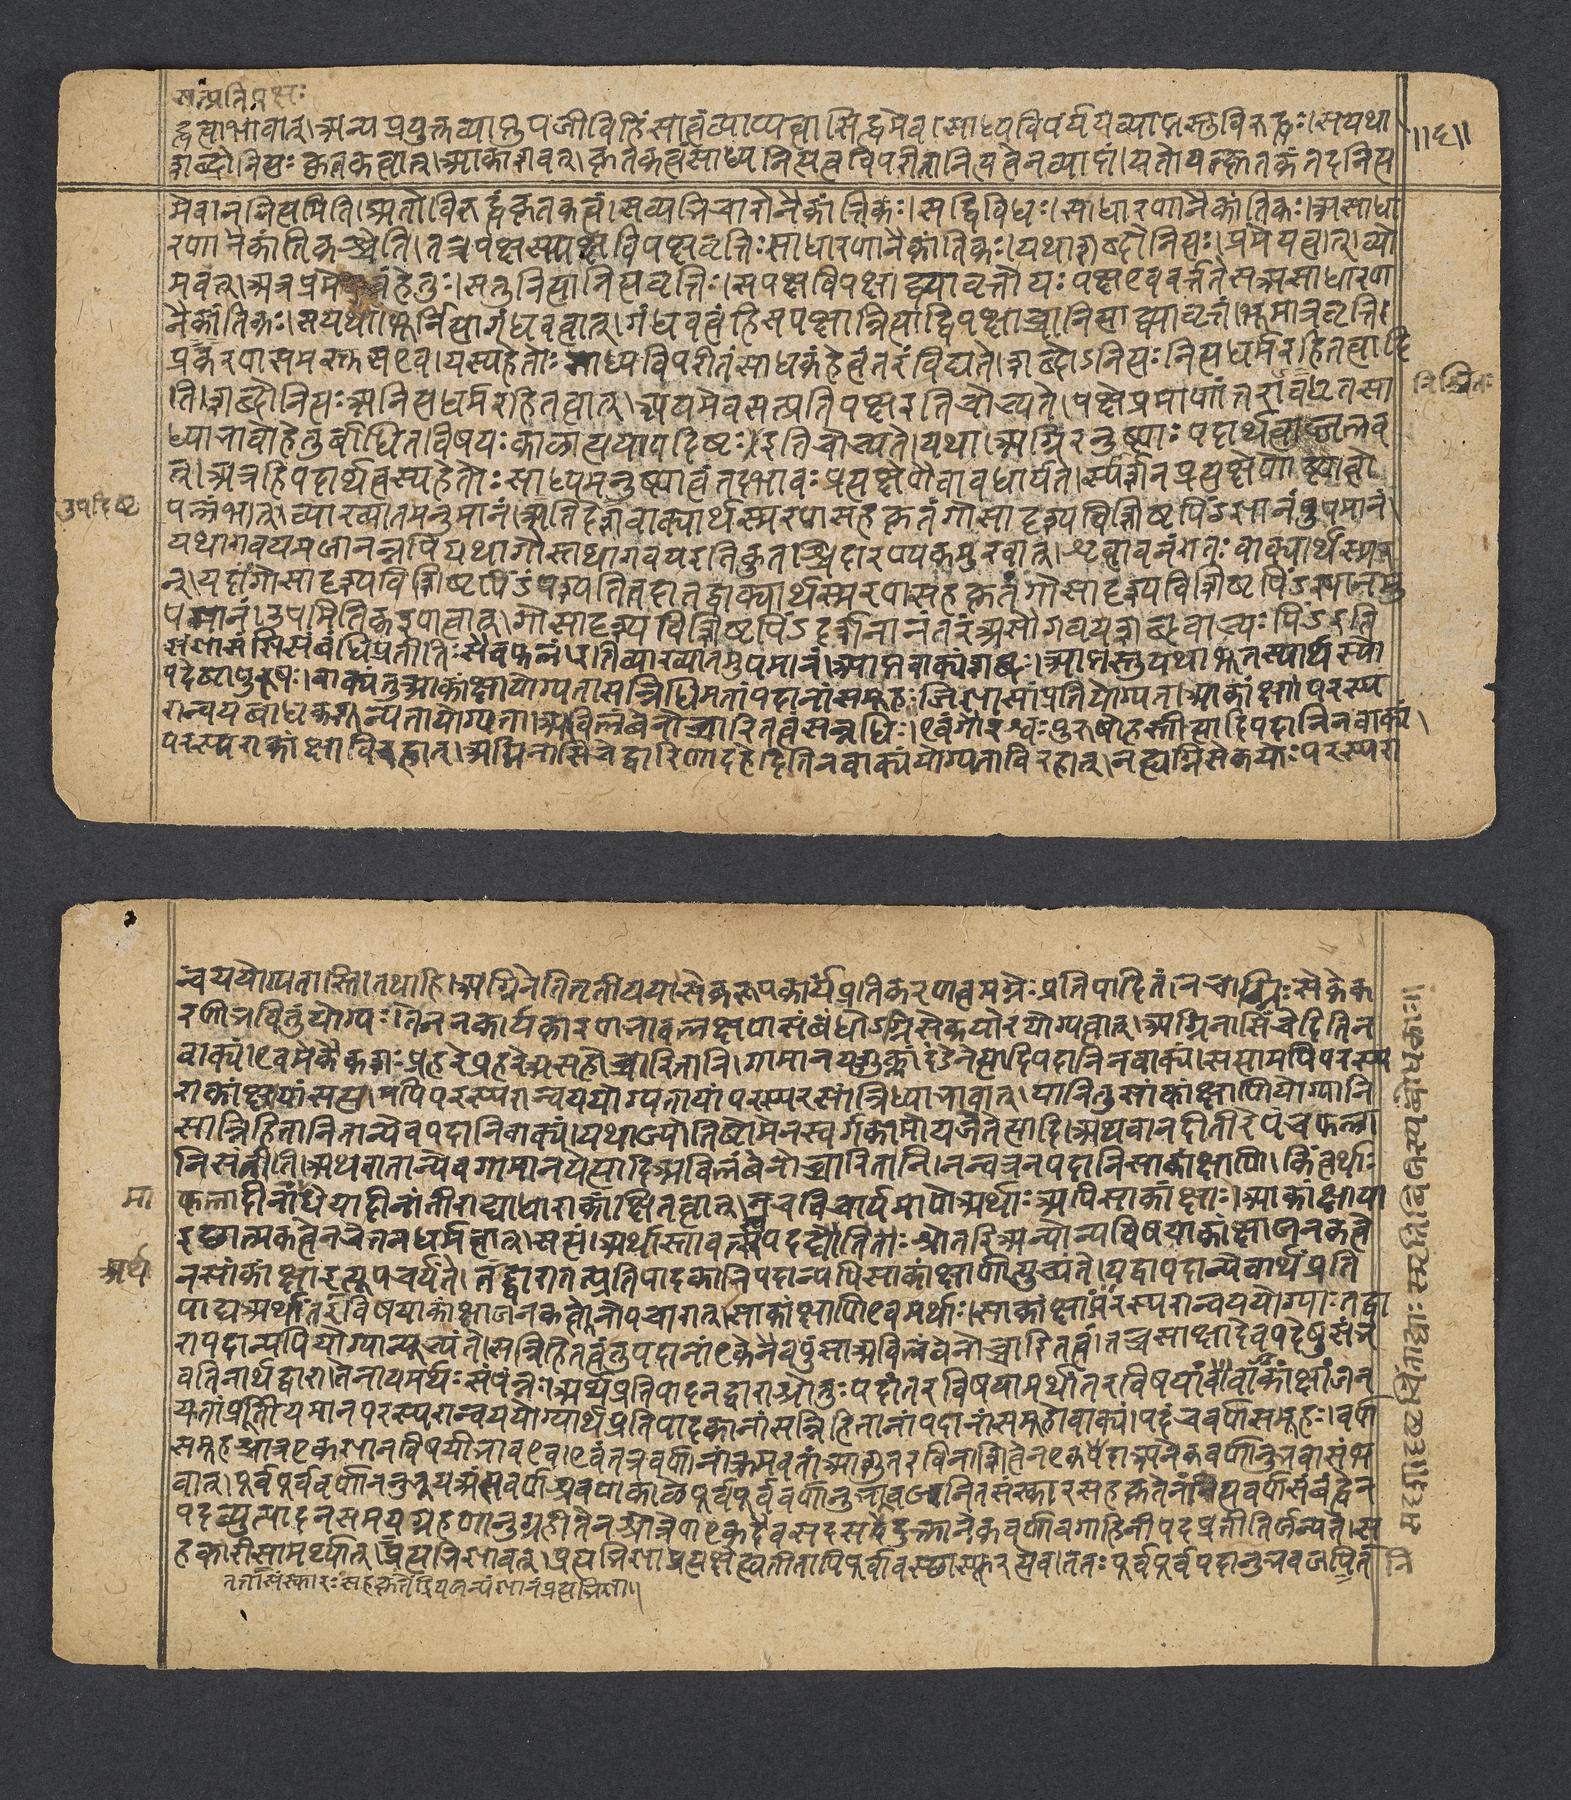 सत्प्रतिपक्षः
द्धत्वाभावात्।अन्यप्रयुक्तव्याप्त्युपजीविहिंसात्वंव्याप्यत्वासिद्धमेव।साध्यविपर्ययव्याप्तस्तुविरुद्धः।सयथा
शब्दोनित्यः कृतकत्वात्।आकाशवत्।कृतकत्वंसाध्यनित्यत्वविपरीतानित्यत्वेनव्याप्तं।यतोयत्कृतकंतदनित्य
॥६॥
मेवाननित्यमिति।अतोविरुद्धंकृतकत्वं।सव्यभिचारोनैकांतिकः।सद्विविधः।साधारणानैकांतिकः।असाधा
रणानैकांतिकश्चेति।तत्रपक्षसपक्षविपक्षवृत्तिःसाधारणानैकांतिकः।यथाशब्दोनित्यः।प्रमेयत्वात्।व्यो
मवत्।अत्रप्रमेयत्वंहेतुः।सतुनित्यानित्यवृत्तिः।सपक्षविपक्षाद्व्यावृत्तोयःपक्षएववर्त्ततेसअसाधारण
नैकांतिकः।सयथा।भूर्नित्यागंधवत्वात्।गंधवत्वंहिसपक्षान्नित्याद्विपक्षाच्चानित्याद्व्यावृत्तं।भूमात्रवृत्ति।
प्रकरणसमस्तुसएव।यस्यहेतोःसाध्यविपरीतंसाधकंहेत्वंतरंविद्यते।शब्दोऽनित्यःनित्यधर्मरहितत्वादि
ति।शब्दोनित्यःअनित्यधर्मरहितत्वात्।अयमेवसत्प्रतिपक्षइतिचोच्यते।पक्षेप्रमाणांतरावधृतसा
निश्चितः
ध्याभावोहेतुर्बाधितविषयःकाळात्ययापदिष्टः।इतिचोच्यते।यथा।अग्निरनुष्णःपदार्थत्वाज्जलव
त्।अत्रहिपदार्थत्वस्यहेतोःसाध्यमनुष्णत्वंतदभावःप्रत्यक्षेणैवावधार्यते।स्पर्शनप्रत्यक्षेणोष्णत्वो
उपदिष्ट
पलंभात्।व्याख्यातमनुमानं।अतिदेशवाक्यार्थस्मरणसहकृतंगोसादृश्यविशिष्टपिंडज्ञानंमुपमानं।
यथागवयमजानन्नपियथागौस्तथागवयइतिकुतश्चिदारण्यकमुखात्।श्रुत्वावनंगतःवाक्यार्थंस्मर
न्।यदागोसादृश्यविशिष्टपिंडंपश्यतितदातद्वाक्यार्थस्मरणसहकृतंगोसादृश्यविशिष्टपिंडज्ञानमु
पमानं।उपमितिकरणत्वात्।गोसादृश्यविशिष्टपिंडदर्शनानंतरंअसौगवयशब्दवाच्यःपिंडइति
संज्ञासंज्ञिसंबंधिप्रतीतिःसैवफलं।इतिव्याख्यातमुपमानं।आप्तवाक्यंशब्दः।आप्तस्तुयथाभूतस्यार्थस्यो
पदेष्टापुरुषः।वाक्यंतुआकांक्षायोग्यतासन्निधिमतांपदानांसमूहः।जिज्ञासांप्रतियोग्यताआकांक्षा।परस्प
रान्वयबाधकशून्यतायोग्यता।अविलंबेनोच्चारितत्वंसन्निधिः।एवंगौरश्वःपुरुषोहस्तीत्यादिपदानिनवाक्यं।
परस्पराकांक्षाविरहात्।अग्निनासिंचेद्वारिणादहेदितिनवाक्यंयोग्यताविरहात्।नह्यग्निसेकयोःपरस्परा
न्वययोग्यतास्ति।तथाहि।अग्निनेतितृतीययासेकरूपकार्यंप्रतिकरणत्वमग्नेःप्रतिपादितं।नचाग्निःसेकेक
रणीभवितुंयोग्यः।तेननकार्यकारणभावलक्षणसंबंधोऽग्निसेकयोरयोग्यत्वात्।अग्निनासिंचेदितिन
वाक्यं।एवमेकैकशःप्रहरेप्रहरेअसहोच्चारितानि।गामानयशुक्लांदंडेनेत्यादिपदानिनवाक्यं।सत्यामपिपरस्प
राकांक्षायांसत्यामपिपरस्परान्वययोग्यतायांपरस्परसांनिध्याभावात्।यानितुसाकांक्षाणियोग्यानि
सान्निहितानितान्येवपदानिवाक्यं।यथाज्योतिष्टोमेनस्वर्गकामोयजेतेत्यादि।अथवानदीतीरेपंचफला
निसंतीति।अथवातान्येवगामानयेत्यादिअविलंबेनोच्चारितानि।नन्वत्रनपदानिसाकांक्षाणि।किंत्वर्थाः
मा
फलादीनांधेयादीनांतीराद्याधाराकांक्षितत्वात्।नचविचार्यमाणेअर्थाःअपिसाकांक्षाः।आकांक्षाया
इच्छात्मकत्वेनचेतनधर्मत्वात्।सत्यं।अर्थास्तावत्स्वपदद्योतिताःश्रोतरिअन्योन्यविषयाकांक्षाजनकत्वे
अर्थ
नसाकांक्षाइत्युपचर्यते।तद्द्वारातत्प्रतिपादकानिपदान्यपिसाकांक्षाणीत्युच्यंते।यद्वापदान्येवार्थंप्रति
पाद्यअर्थांतरविषयाकांक्षाजनकत्वेनोपचारात्।साकांक्षाणि।एवमर्थाः।साकांक्षाःपरस्परान्वययोग्याःतद्वा
रापदान्यपियोग्यान्युच्यंते।सन्निहितत्वंतुपदानांएकेनैवपुंसाअविलंबेनोच्चारितत्वं।तच्चसाक्षादेवपदेषुसंभ
वतिनार्थद्वारा।तेनायमर्थःसंपन्नः।अर्थप्रतिपादनद्वाराश्रोतुःपदांतरविषयामर्थांतरविषयांवाआकांक्षांजन
यतांप्रतीयमानपरस्परान्वययोग्यार्थप्रतिपादकानांसन्निहितानांपदानांसमूहोवाक्यं।पदंचवर्णसमूहः।वर्ण
समूहश्चात्रएकज्ञानविषयीभावएव।एवंतत्रवर्णानांक्रमवतांआशुतरविनाशित्वेनएकपदाअनेकवर्णानुभवासंभ
वात्।पूर्वपूर्ववर्णाननुभूयअंत्यवर्णश्रवणकाळेपूर्वपूर्ववर्णानुभवजनितसंस्कारसहकृतेनांत्यवर्णसंबंद्धेन
पदव्युत्पादनसमयग्रहणानुगृहीतेनश्रोत्रेणएकदैवसदसदेदनेकवर्णावगाहिनीपदप्रतीतिर्जन्यते।स
हकारीसामर्थ्यात्।प्रत्यभिज्ञावत्।प्रत्यभिज्ञाप्रत्यक्षेह्यतीतापिपूर्वावस्थास्फुरत्येव।ततःपूर्वपूर्वपदानुभवजनित
तत्तासंस्कारःसहकृतेंद्रियजन्यंज्ञानंप्रत्यभिज्ञा॥
सदृशादृष्टचिंताद्याःस्मृतिबीजस्यबोधकाः॥